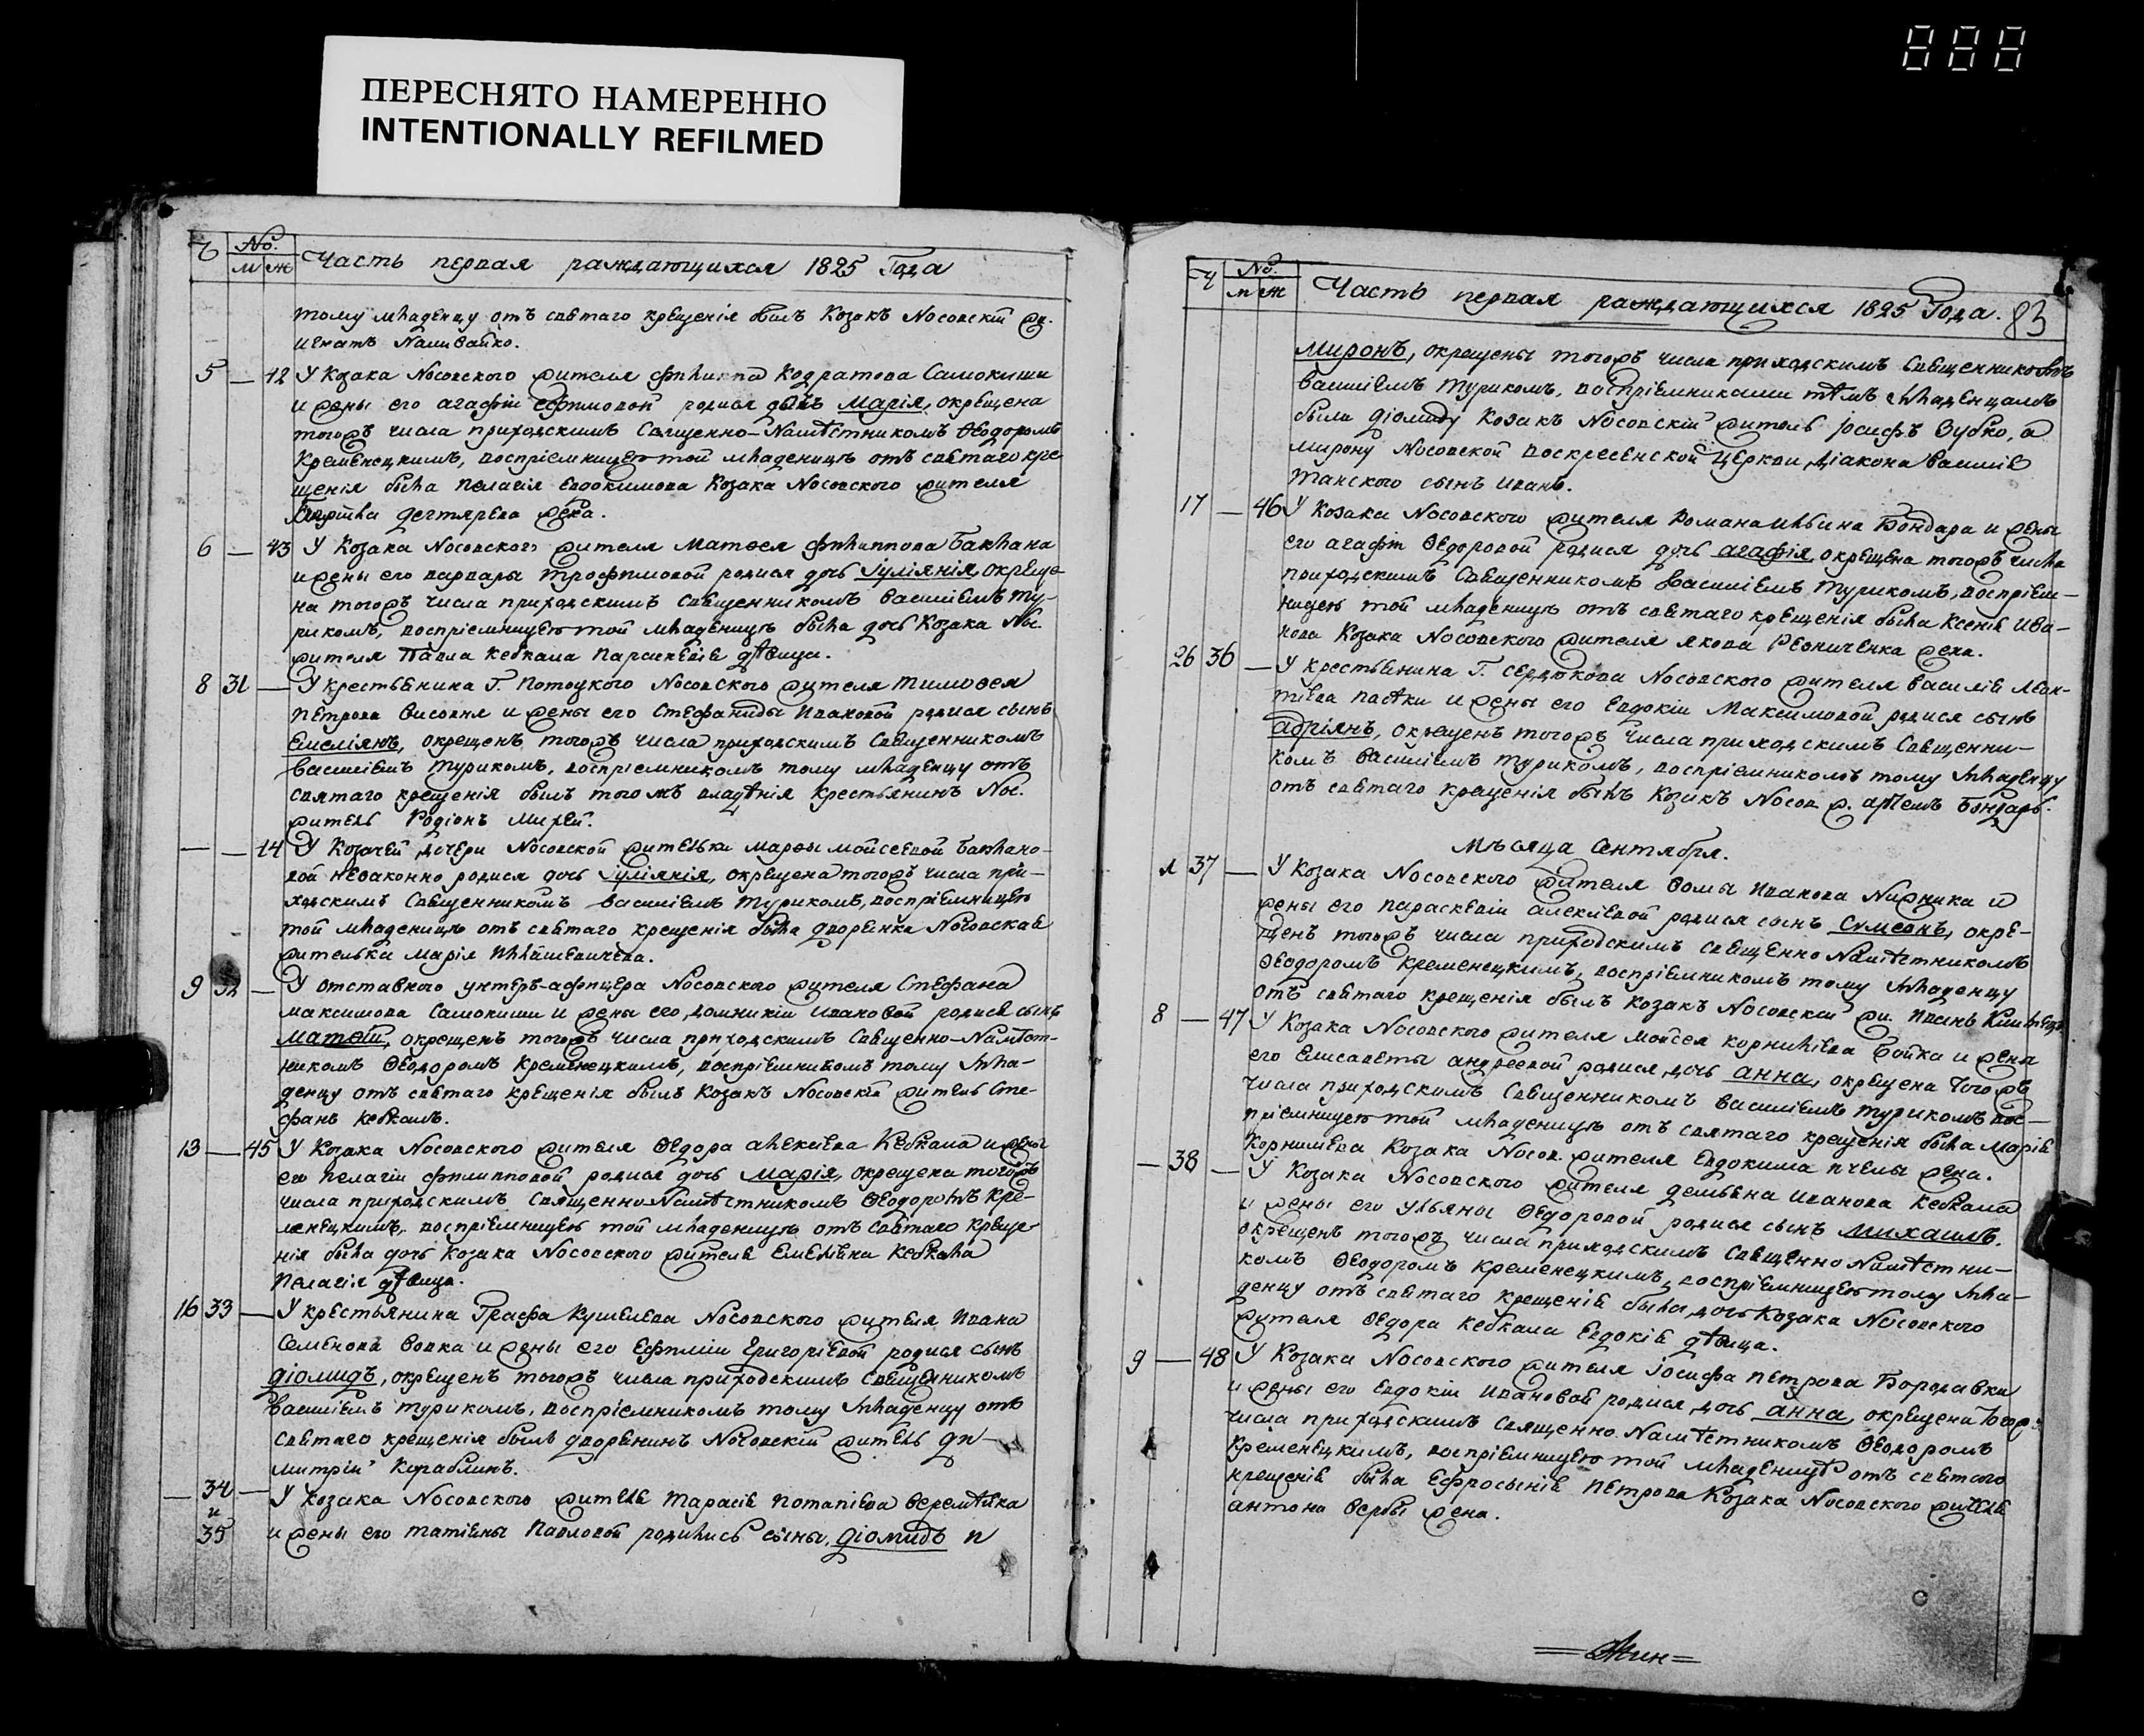 ПЕРЕСНЯТО НАМЕРЕННО
INTENTIONALLY REFILMED
Ч No. м ж Часть первая раждающихся 1825 Года
тому младенцу отъ святаго крещенія былъ Козакъ Носовскій жи.
Игнатъ Наливайко.
5 — 42 У Козака Носовского жителя Филиппа Кодратова Самокиши
и жены его Агафіи Ефимовой родися дочь Марія, окрещена
тогожъ числа приходскимъ Священно-Намѣстникомъ Ѳеодоромъ
Кременецкимъ, воспріемницею той младеницѣ отъ святаго кре
щенія была Пелагія Евдокимова Козака Носовского жителя
Дегтярева жена.
6 — 43 У Козака Носовского жителя Матѳея Филиппова Баклана
и жены его Варвары Трофимовой родися дочь Іуліянія, окреще-
на тогожъ числа приходскимъ Священникомъ Василіемъ Ту-
рикомъ, воспріемницею той младеницѣ была дочь Козака Нос.
жителя Павла Кебкала Параскевія дѣвица.
8 31 — У крестьянина Г. Потоцкого Носовского жителя Тимоѳея
Петрова Високия и жены его Стефаниды Ивановой родися сынъ
Емеліянъ, окрещенъ тогожъ числа приходскимъ Священникомъ
Василіемъ Турикомъ, воспріемникомъ тому младенцу отъ
святаго крещенія былъ того жъ владѣнія крестьянинъ Нос.
житель Родіонъ Михей.
— — 44 У Козачей дочери Носовской жительки Марѳы Мойсеевой Баклано-
вой незаконно родися дочь Іуліянія, окрещена тогожъ числа при-
ходскимъ Священникомъ Василіемъ Турикомъ, воспріемницею
той младеницѣ отъ святаго крещенія была дворянка Носовская
жителька Марія
9 32 — У отставного унтеръ-афицера Носовского жителя Стефана
Максимова Самокиши и жены его Домникіи Ивановой родися сынъ
Матѳей, окрещенъ тогожъ числа приходскимъ Священно-Намѣст-
никомъ Ѳеодоромъ Кременецкимъ, воспріемникомъ тому мла-
денцу отъ святаго крещенія былъ Козакъ Носовскій житель Сте-
фанъ Кебкалъ.
13 — 45 У Козака Носовского жителя Ѳедора Алексіева Кебкала и жены
его Пелагіи Филипповой родися дочь Марія, окрещена тогожъ
числа приходскимъ Священно Намѣстникомъ Ѳеодоромъ Кре-
менецкимъ, воспріемницею той младеницѣ отъ святаго креще-
нія была дочь Козака Носовского жителя Емеліяна Кебкала
Пелагія дѣвица.
16 33 — У крестьянина Графа Кушелева Носовского жителя Ивана
Семенова Вовка и жены его Ефиміи Григоріевой родися сынъ
Діомидъ, окрещенъ тогожъ числа приходскимъ Священникомъ
Василіемъ Турикомъ, воспріемникомъ тому младенцу отъ
святаго крещенія былъ дворянинъ Носовскій житель Ди-
митрій Кораблинъ.
— 34 и 35 — У Козака Носовского жителя Тарасія Потапіева Веремѣйка
и жены его Татіяны Павловой родились сыны, Діомидъ и
Ч No. м ж Часть первая раждающихся 1825 Года. 83
Миронъ, окрещены тогожъ числа приходскимъ Священникомъ
Василіемъ Турикомъ, воспріемниками тѣмъ младенцамъ
были Діомиду Козакъ Носовскій житель Іосифъ Зубко, а
Мирону Носовской Воскресенской Церкви Діакона Василія
Танского сынъ Иванъ.
17 — 46 У Козака Носовского жителя Романа Ильина Бондара и жены
его Агафіи Ѳедоровой родися дочь Агафія, окрещена тогожъ числа
приходскимъ Священникомъ Василіемъ Турикомъ, воспріем-
ницею той младеницѣ отъ святаго крещенія была Ксенія Ива-
нова Козака Носовского жителя Якова Ревниченка жена.
26 36 — У крестьянина Г. Сердюкова Носовского жителя Василія Леон-
тіева Паѣки и жены его Евдокіи Максимовой родися сынъ
Адріянъ, окрещенъ тогожъ числа приходскимъ Священни-
комъ Василіемъ Турикомъ, воспріемникомъ тому младенцу
отъ святаго крещенія былъ Козакъ Носов ж. Артемъ Бондарь.
Мѣсяца Сентября.
1 37 — У Козака Носовского жителя Ѳомы Иванова Нирника и
жены его Параскевіи Алексіевой родися сынъ Сумеонъ, окре-
щенъ тогожъ числа приходскимъ Священно Намѣстникомъ
Ѳеодоромъ Кременецкимъ, воспріемникомъ тому младенцу
отъ святаго крещенія былъ Козакъ Носовскій жи. Иванъ
8 — 47 У Козака Носовского жителя Мойсея Корниліева Бойка и жены
его Елисаветы Андреевой родися дочь Анна, окрещена тогожъ
числа приходскимъ Священникомъ Василіемъ Турикомъ вос-
пріемницею той младеницѣ отъ святаго крещенія была Марія
Корниліева Козака Носов. жителя Евдокима Пчелы жена.
— 38 — У Козака Носовского жителя Демьяна Иванова Кебкала
и жены его Ульяны Ѳедоровой родися сынъ Михаилъ.
окрещенъ тогожъ числа приходскимъ Священно Намѣстни-
комъ Ѳеодоромъ Кременецкимъ, воспріемницею тому мла-
денцу отъ святаго крещенія была дочь Козака Носовского
жителя Ѳедора Кебкала Евдокія дѣвица.
9 — 48 У Козака Носовского жителя Іосифа Петрова Бородавки
и жены его Евдокіи Ивановой родися дочь Анна, окрещена тогож:
числа приходскимъ Священно Намѣстникомъ Ѳеодоромъ
Кременецкимъ, воспріемницею той младеницѣ отъ святаго
крещенія была Ефросынія Петрова Козака Носовского жителя
Антона Вербы жена.